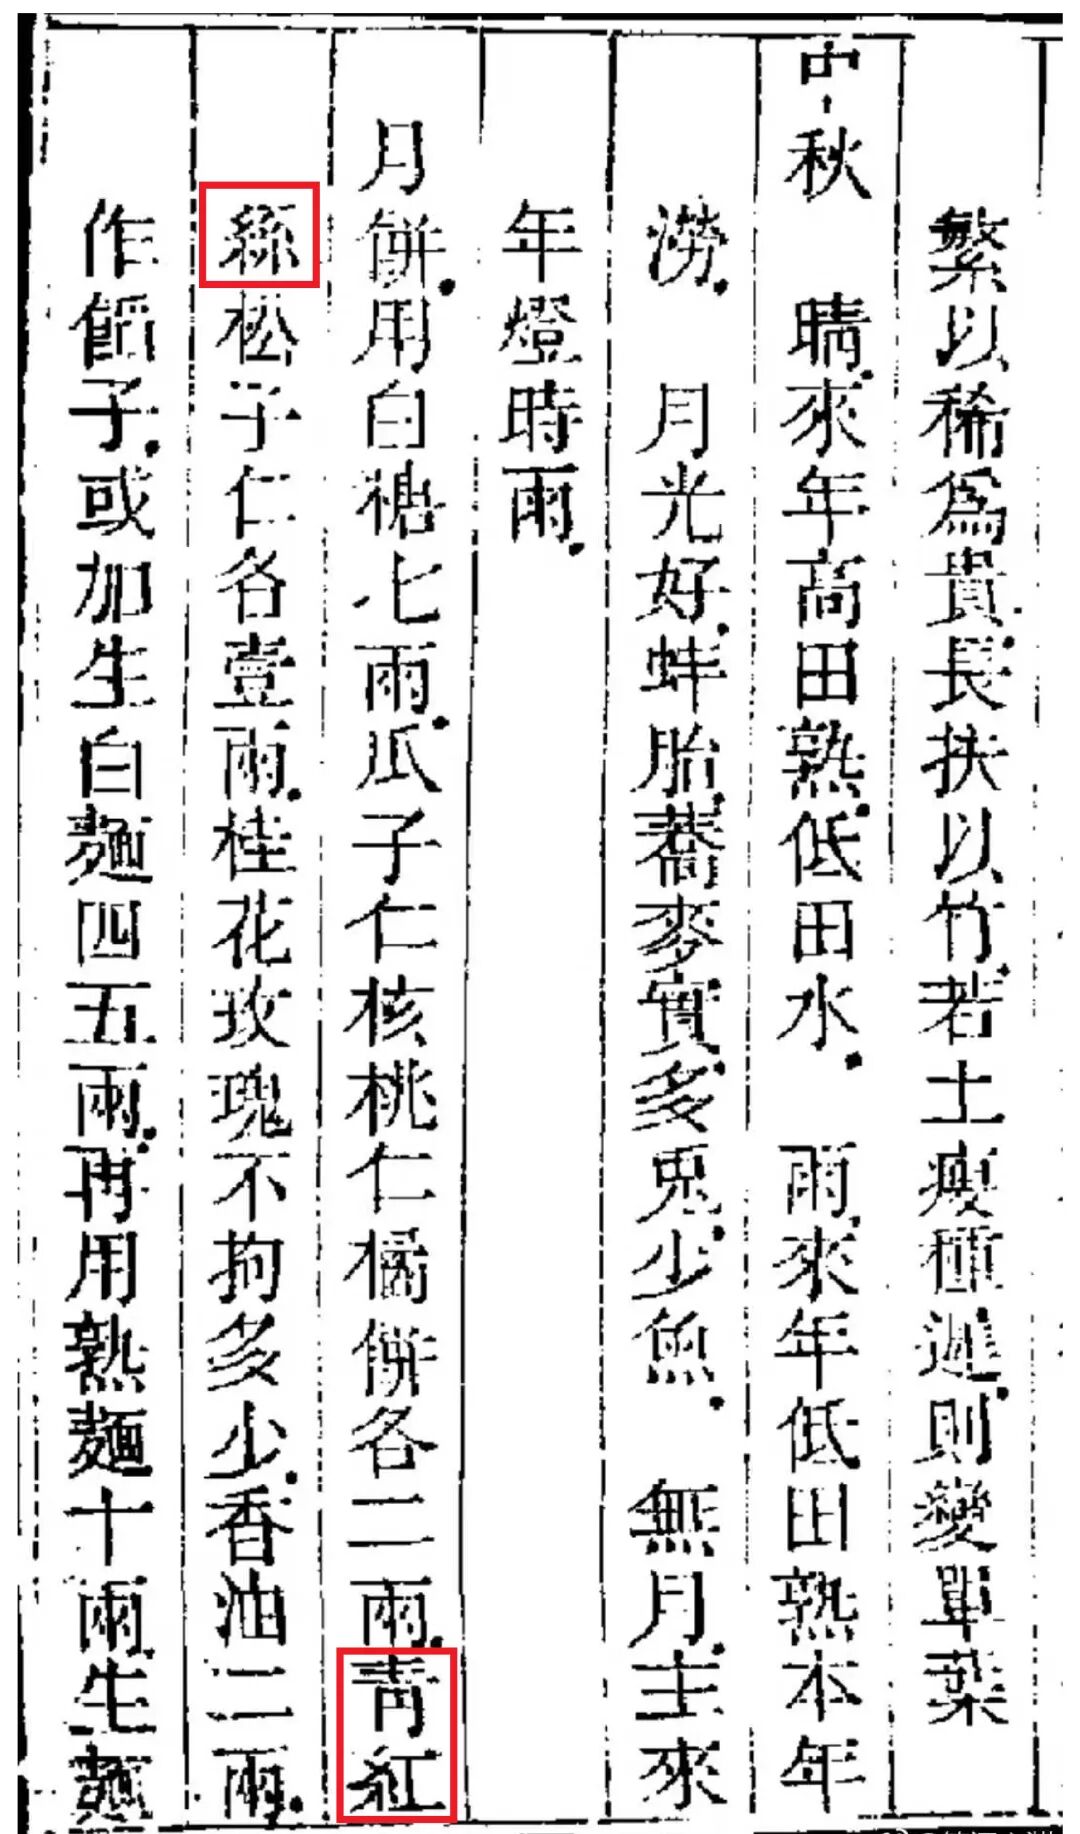 繁以稀為貴長扶以竹若土瘦種遲則變單葉
中秋 晴來年高田熟低田水 雨來年低田熟本年
澇 月光好蚌胎蕎麥實多兎少魚 無月主來
年燈時雨
月餅用白糖七兩瓜子仁核桃仁橘餅各二兩青紅
絲松子仁各壹兩桂花玫瑰不拘多少香油二兩
作餡子或加生白麵四五兩再用熟麵十兩生麵